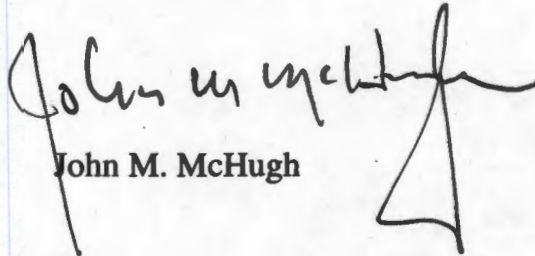 John M McHugh
John M. McHugh